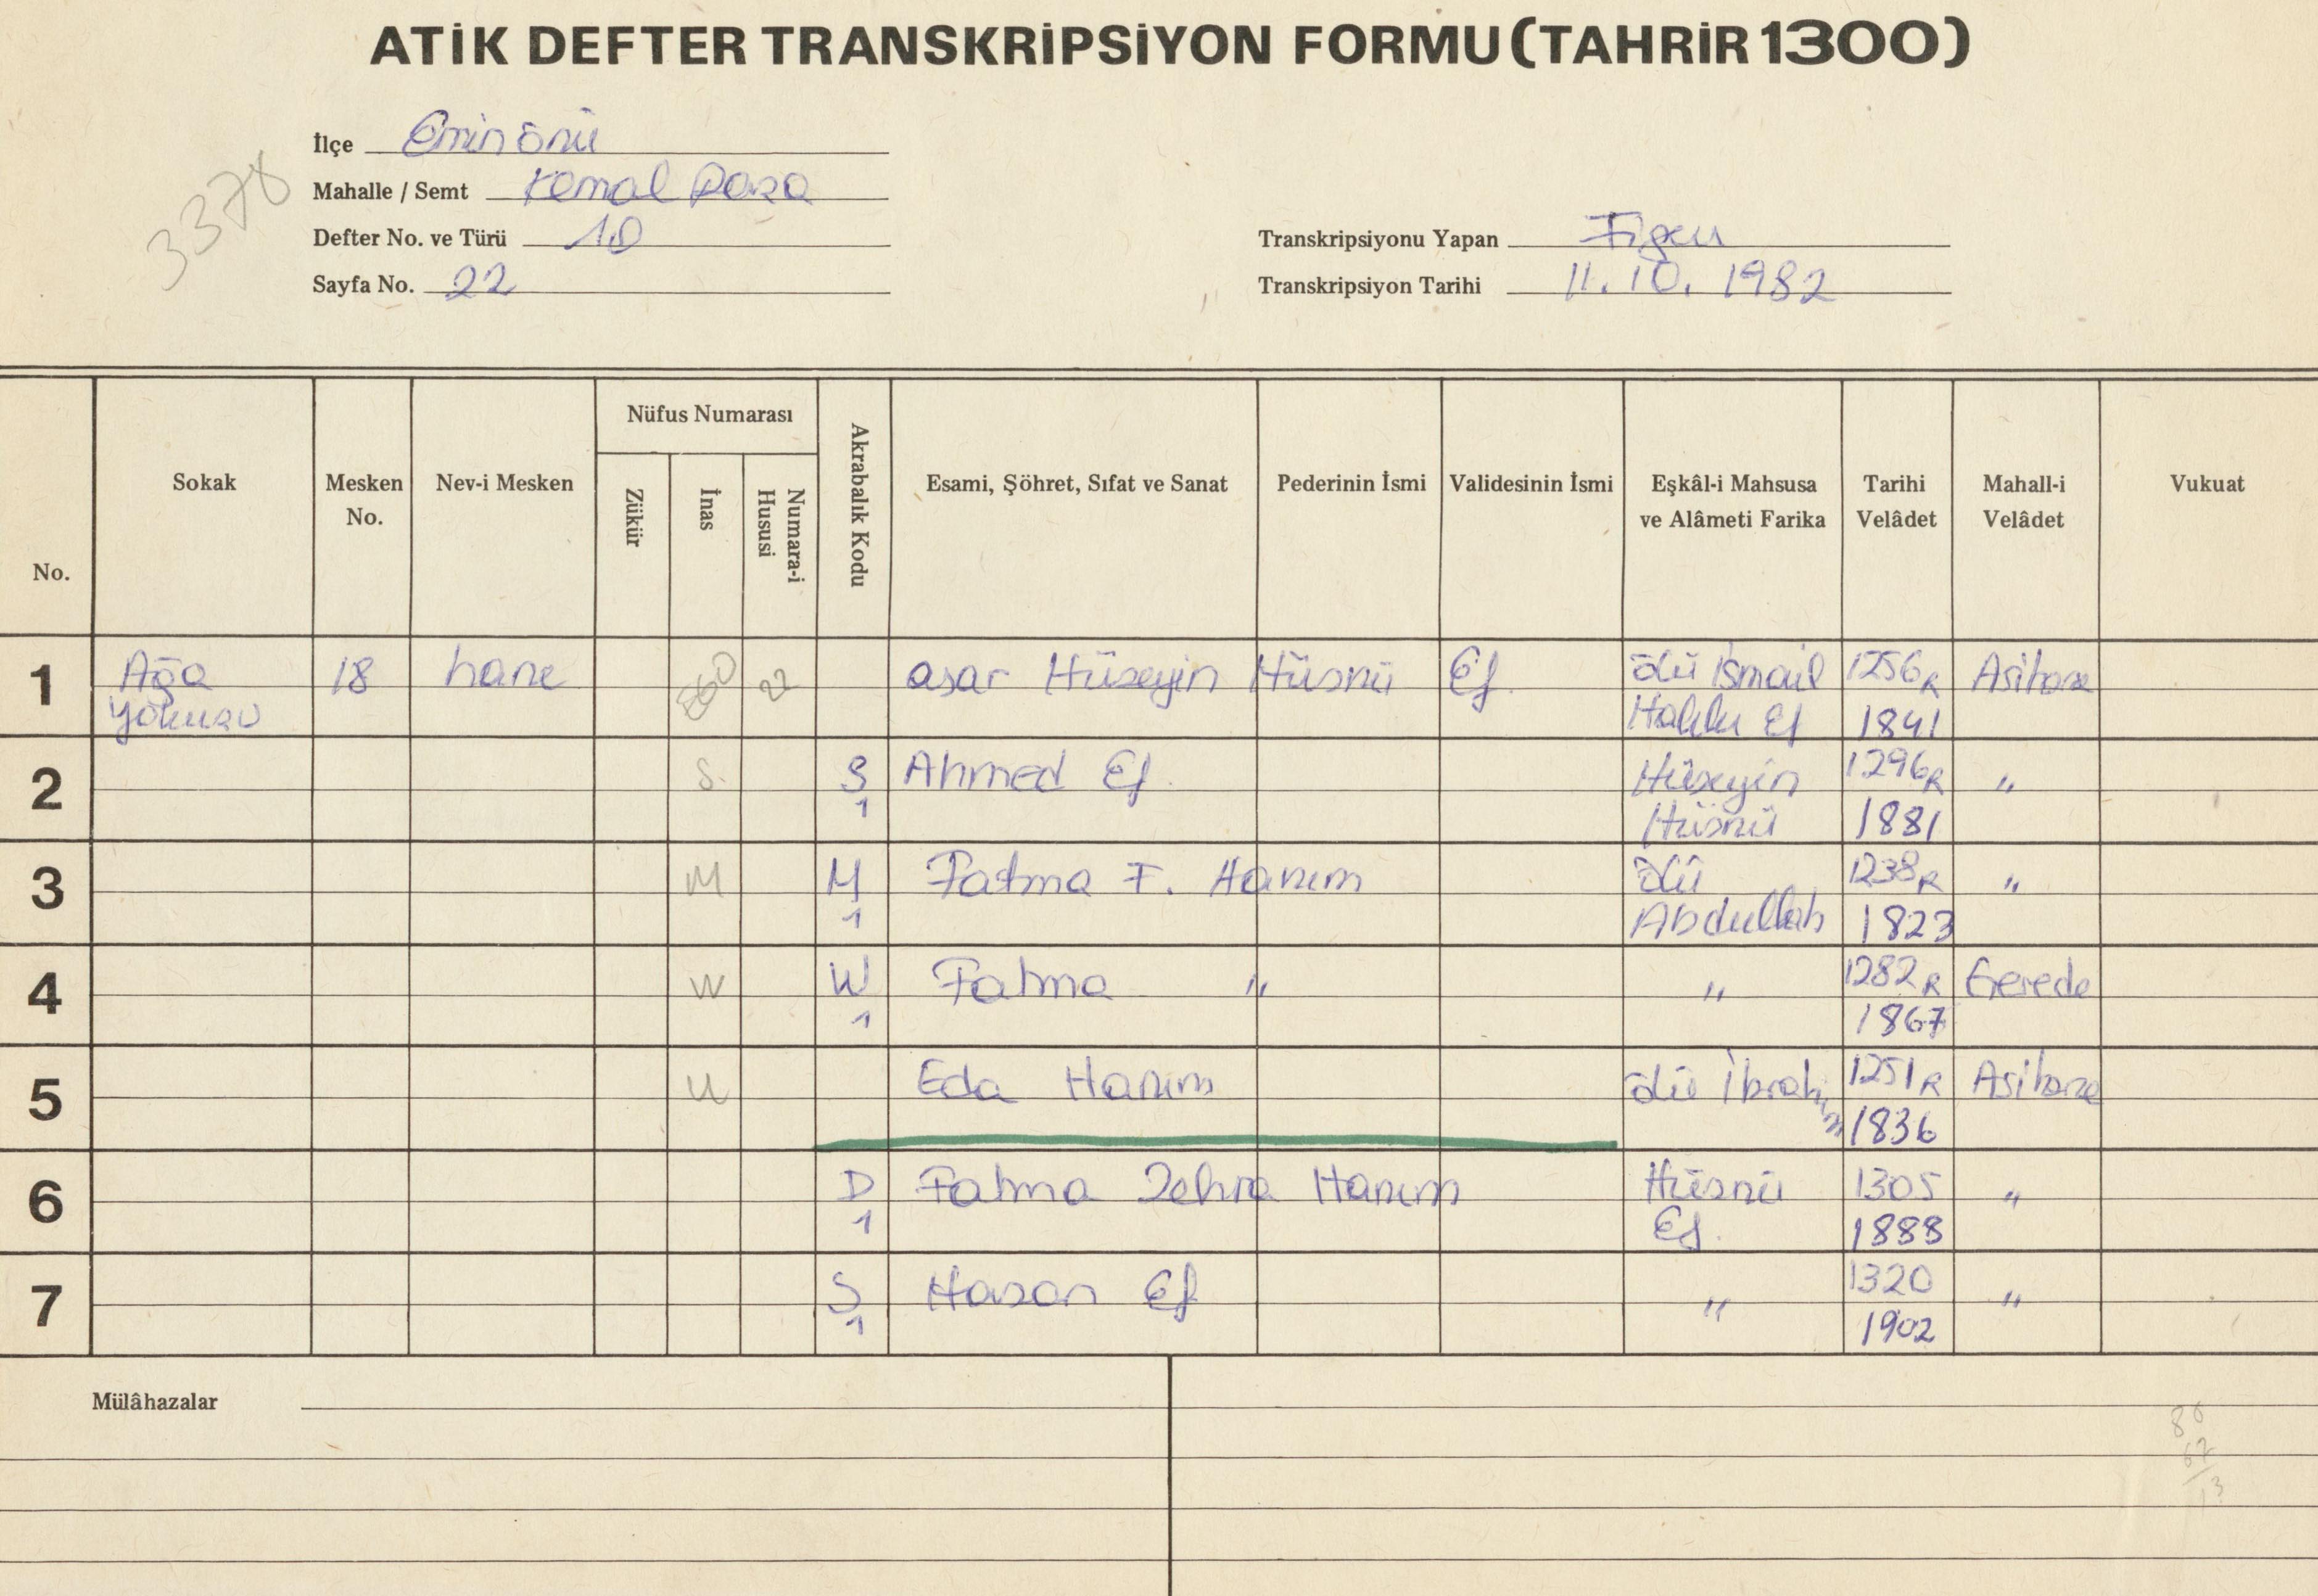 ATİK DEFTER TRANSKRİPSİYON FORMU (TAHRİR 1300)
3378
İlçe Eminönü
Mahalle / Semt Kemal Paşa
Defter No. ve Türü 10
Sayfa No. 22
Transkripsiyonu Yapan Figen
Transkripsiyon Tarihi 11.10.1982
No. Sokak Mesken No. Nev-i Mesken Nüfus Numarası Zükûr İnas Numara-i Hususi Akrabalık Kodu Esami, Şöhret, Sıfat ve Sanat Pederinin İsmi Validesinin İsmi Eşkâl-i Mahsusa ve Alâmeti Farika Tarihi Velâdet Mahall-i Velâdet Vukuat
1 Ağa 18 hane 22 aşar Hüseyin Hüsnü Ef. ölü İsmail 1256R Asitane
yokuşu Hakkı Ef 1841
2 S. S Ahmed Ef. Hüseyin 1296R "
1 Hüsnü 1881
3 M M Fatma F. Hanım ölü 1238R "
1 Abdullah 1823
4 W W Fatma " " 1282R Gerede
1 1867
5 U Eda Hanım ölü İbrahim 1251R Asitane
1836
6 D Fatma Zehra Hanım Hüsnü 1305 "
1 Ef. 1888
7 S Hasan Ef " 1320 "
1 1902
Mülâhazalar